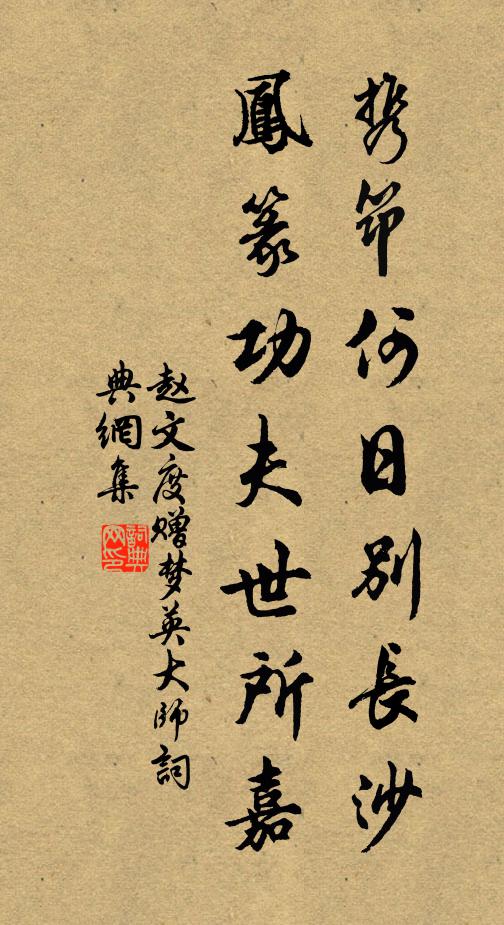 携筇何日别長沙
鳳篆功夫世所嘉
赵文度赠梦英大師詞
典網集
詞典网印